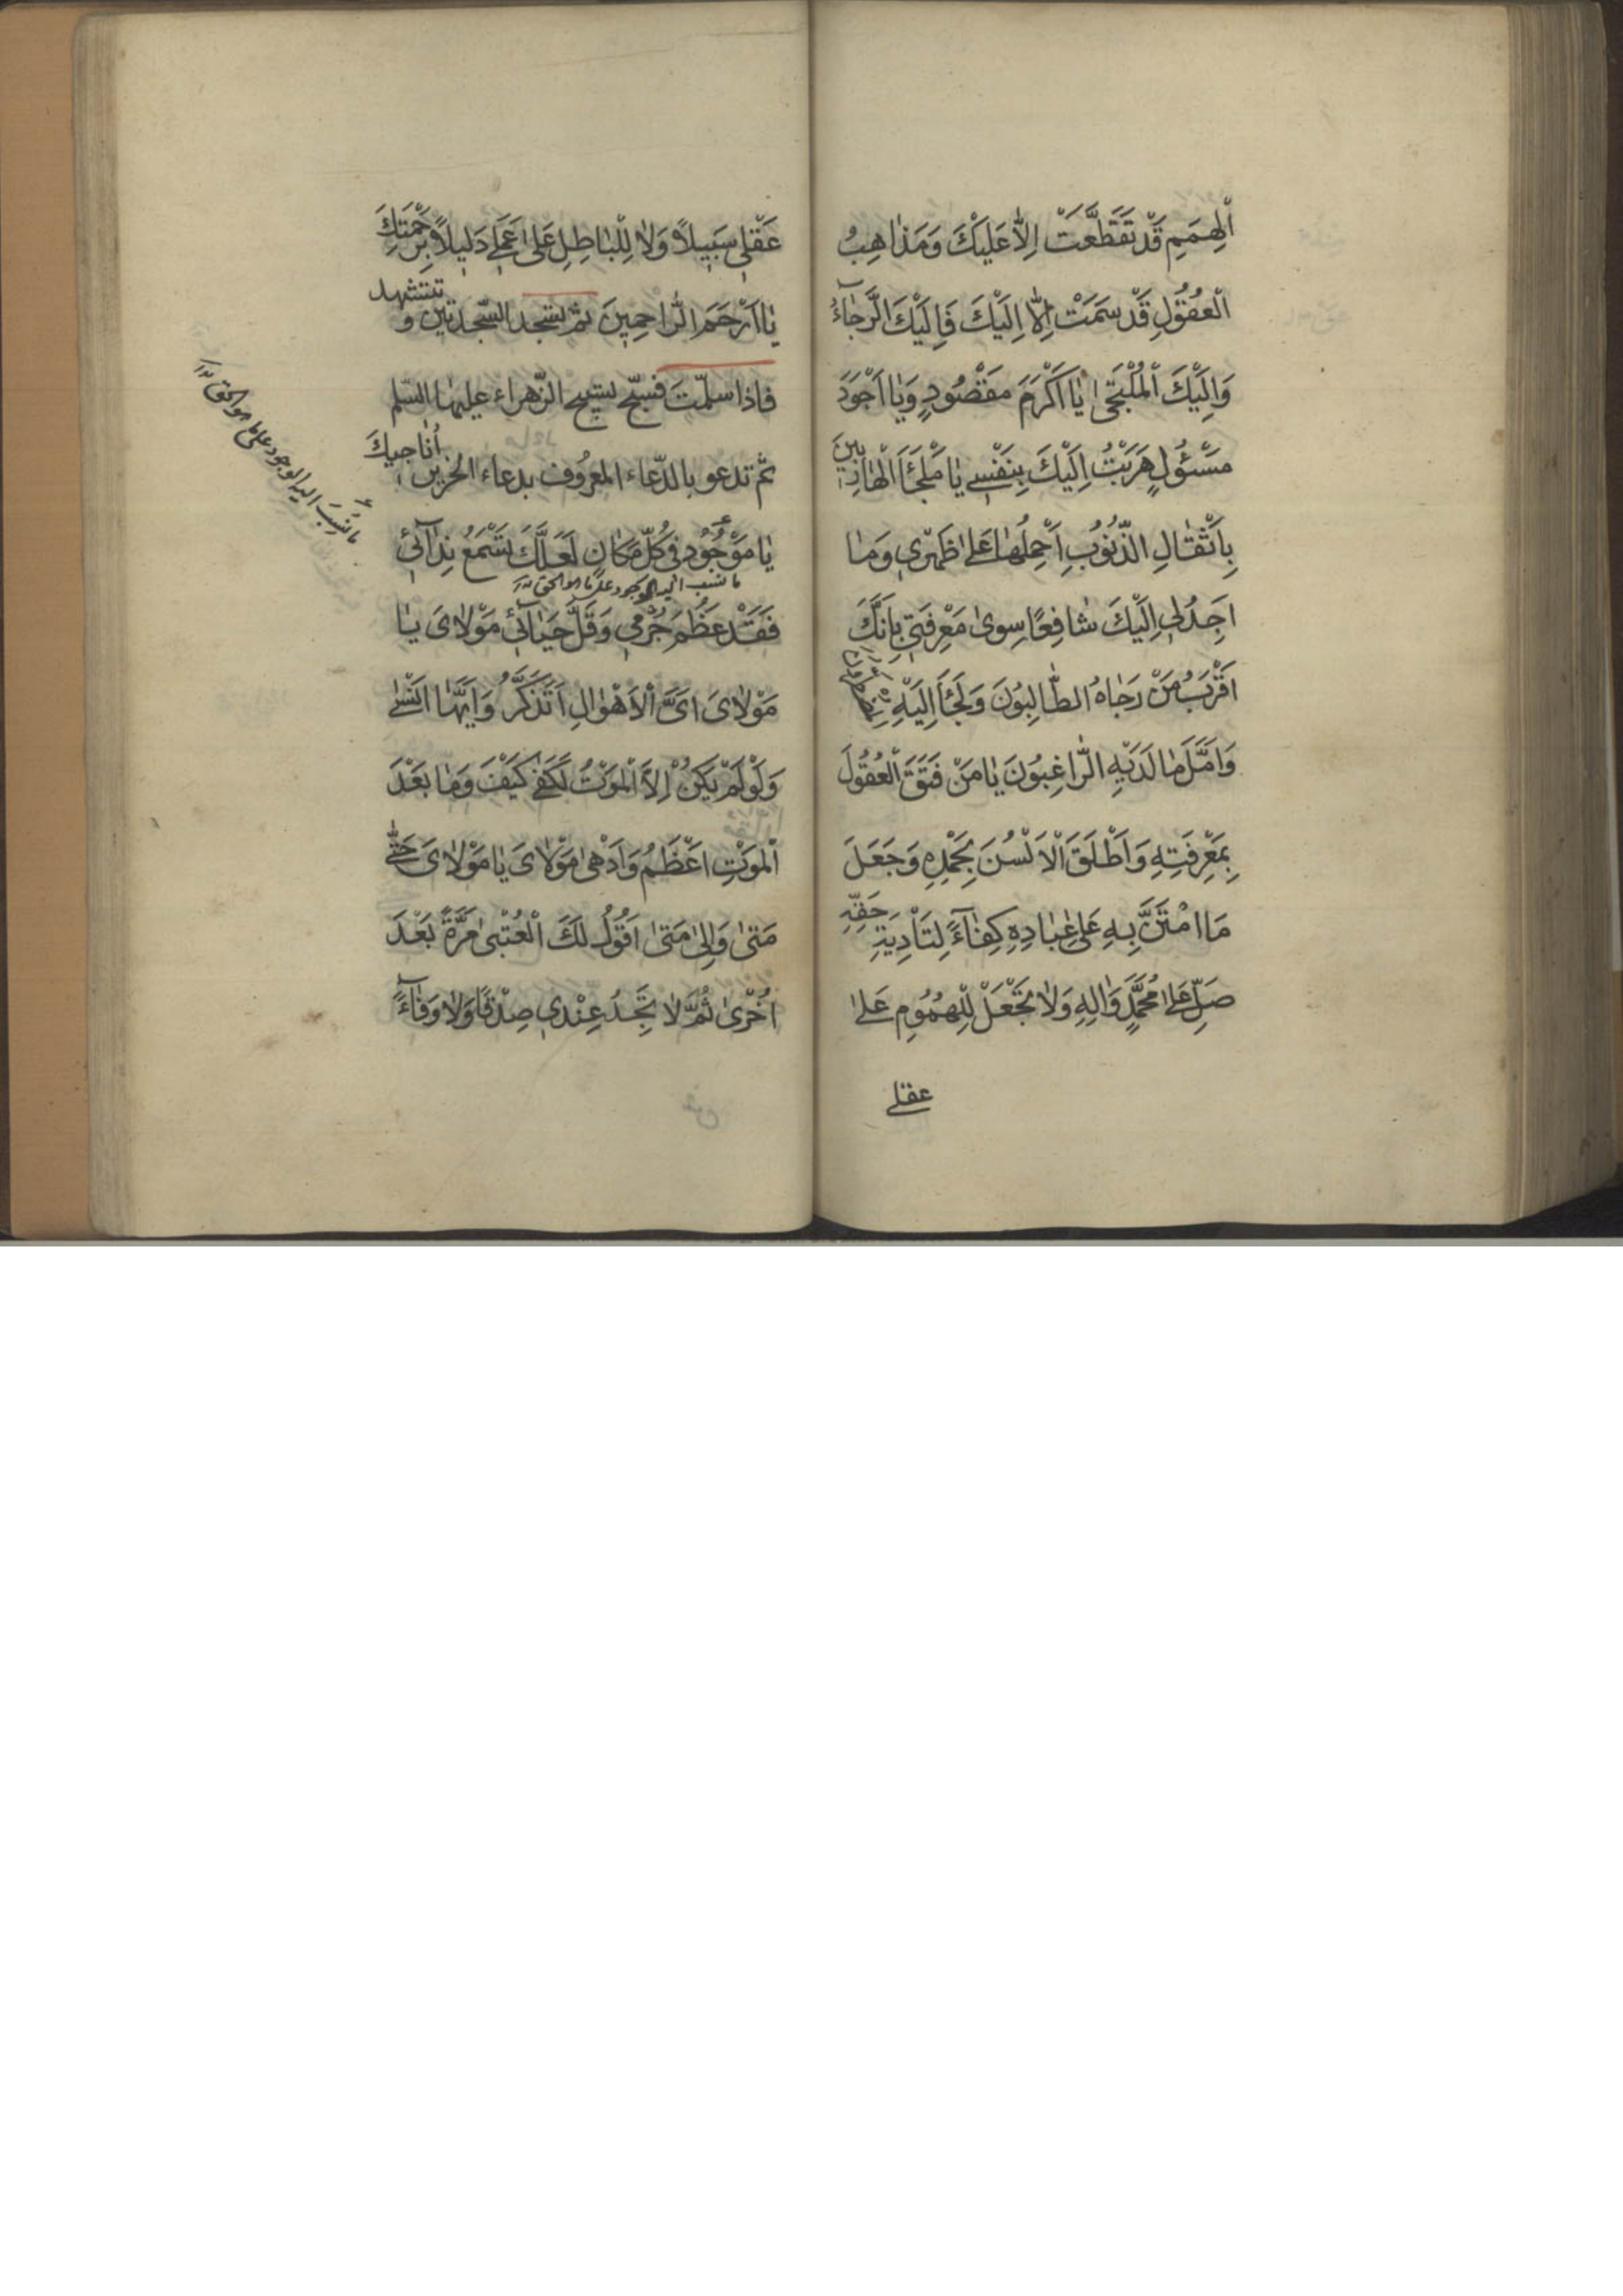 اَلْهِمَمِ قَدْ تَقَطَّعَتْ اِلَّا عَلَيْكَ وَمَذاهِبُ
الْعُقُولِ قَدْ سَمَتْ اِلَّا اِلَيْكَ فَاِلَيْكَ الرَّجآءُ
وَاِلَيْكَ الْمُلْتَجىٰ يا اَكْرَمَ مَقْصُودٍ وَيا اَجْوَدَ
مَسْئُولٍ هَرَبْتُ اِلَيْكَ بِنَفْسي يا مَلْجَأَ الْهارِبينَ
بِاَثْقالِ الذُّنُوبِ اَحْمِلُها عَلىٰ ظَهْري وَما
اَجِدُ لي اِلَيْكَ شافِعًا سِوىٰ مَعْرِفَتي بِاَنَّكَ
اَقْرَبُ مَنْ رَجاهُ الطّالِبُونَ وَلَجَأَ اِلَيْهِ
وَاَمَّلَ ما لَدَيْهِ الرّاغِبُونَ يا مَنْ فَتَقَ الْعُقُولَ
بِمَعْرِفَتِهِ وَاَطْلَقَ الْاَلْسُنَ بِحَمْدِهِ وَجَعَلَ
مَا امْتَنَّ بِهِ عَلىٰ عِبادِهِ كِفآءً لِتَأْدِيَةِ حَقِّهِ
صَلِّ عَلىٰ مُحَمَّدٍ وَالِهِ وَلا تَجْعَلْ لِلْهُمُومِ عَلىٰ
عقلي
عَقْلي سَبيلاً وَلا لِلْباطِلِ عَلىٰ عَمَلي دَليلاً بِرَحْمَتِكَ
يا اَرْحَمَ الرّاحِمينَ ثمّ تسجد السّجدتين و تتشهد
فاذا سلّمتَ فسبّح تسبيح الزّهراء عليها السّلم
ثمّ تدعو بالدّعاء المعرُوف بدعاء الحزين اُناجيكَ
يا مَوْجُودُ في كُلِّ مَكانٍ لَعَلَّكَ تَسْمَعُ نِدآئي
ما نسب اليه الوجود علي ما هو الحق
فَقَدْ عَظُمَ جُرْمي وَقَلَّ حَيآئي مَوْلايَ يا
مَوْلايَ اَيَّ الْاَهْوالِ اَتَذَكَّرُ وَاَيَّها اَنْسىٰ
وَلَوْ لَمْ يَكُنْ اِلَّا الْمَوْتُ لَكَفىٰ كَيْفَ وَما بَعْدَ
الْمَوْتِ اَعْظَمُ وَاَدْهىٰ مَوْلايَ يا مَوْلايَ حَتّىٰ
مَتىٰ وَاِلىٰ مَتىٰ اَقُولُ لَكَ الْعُتْبىٰ مَرَّةً بَعْدَ
اُخْرىٰ ثُمَّ لا تَجِدُ عِنْدي صِدْقًا وَلا وَفآءً
ما نسب اليه الوجود علي ما هو الحق